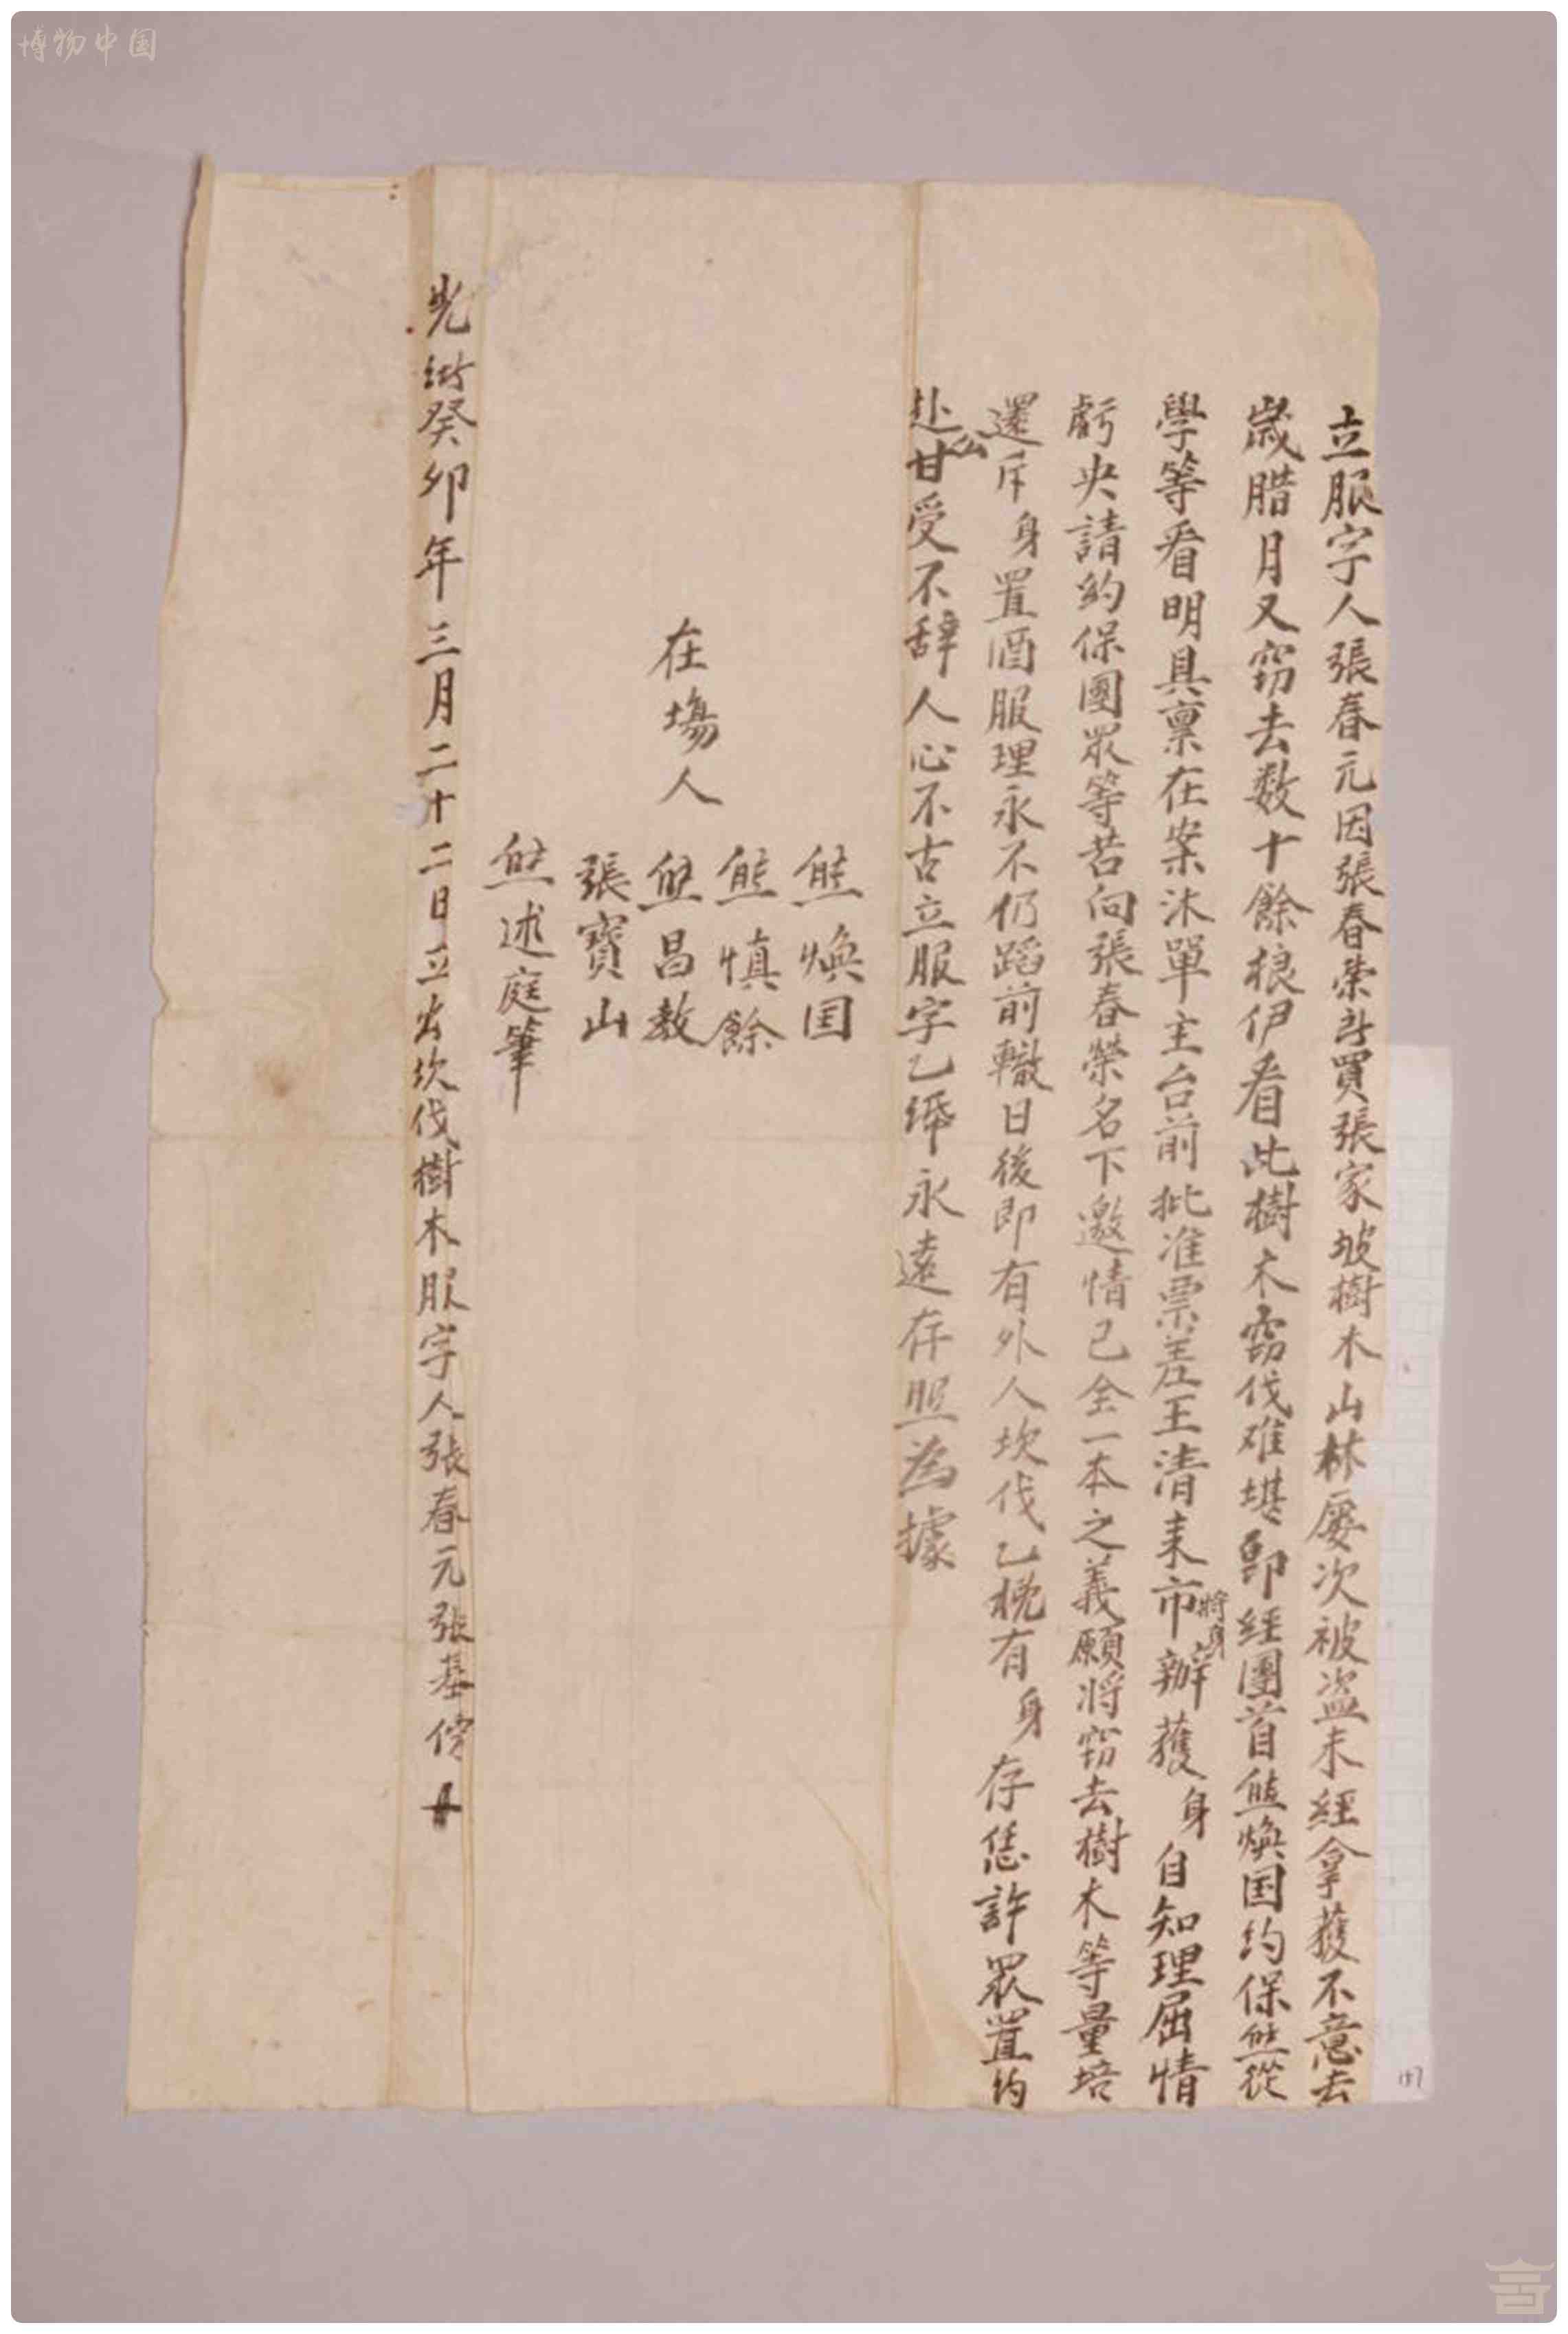 博物中国
立服字人張春元因張春荣買張家坡樹木山林屡次被盗未經拿獲不意去
歲腊月又窃去数十餘根伊看此樹木窃伐难堪即經團首熊焕国约保熊從
學等看明具禀在案沐單主台前批准票差王清来市將身辦獲身自知理屈情
虧央請約保團眾等苦向張春榮名下邀情已全一本之義願將窃去樹木等量培
還斥身置酒服理永不仍蹈前轍日後即有外人坎伐乙概有身存恁許眾置约
赴公甘受不辞人心不古立服字乙纸永遠存照為據
在場人
熊焕国
熊慎餘
熊昌教
張寶山
熊述庭筆
光緒癸卯年三月二十二日立出坎伐樹木服字人張春元張基十